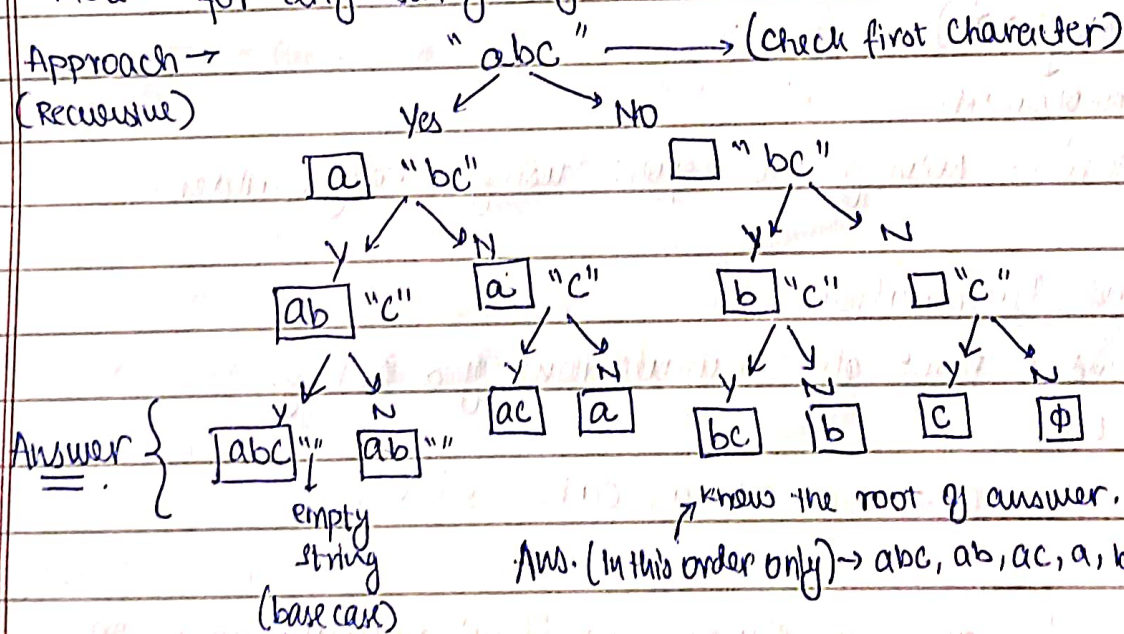 for any
Approach → "abc" → (check first character)
(Recursive)
Yes NO
a "bc" "bc"
Y N Y N
ab "c" a "c" b "c" "c"
Y N Y N Y N Y N
Answer { abc "" ab "" ac a bc b c ϕ
empty
string
(base case)
know the root of answer.
Ans. (In this order only) → abc, ab, ac, a,